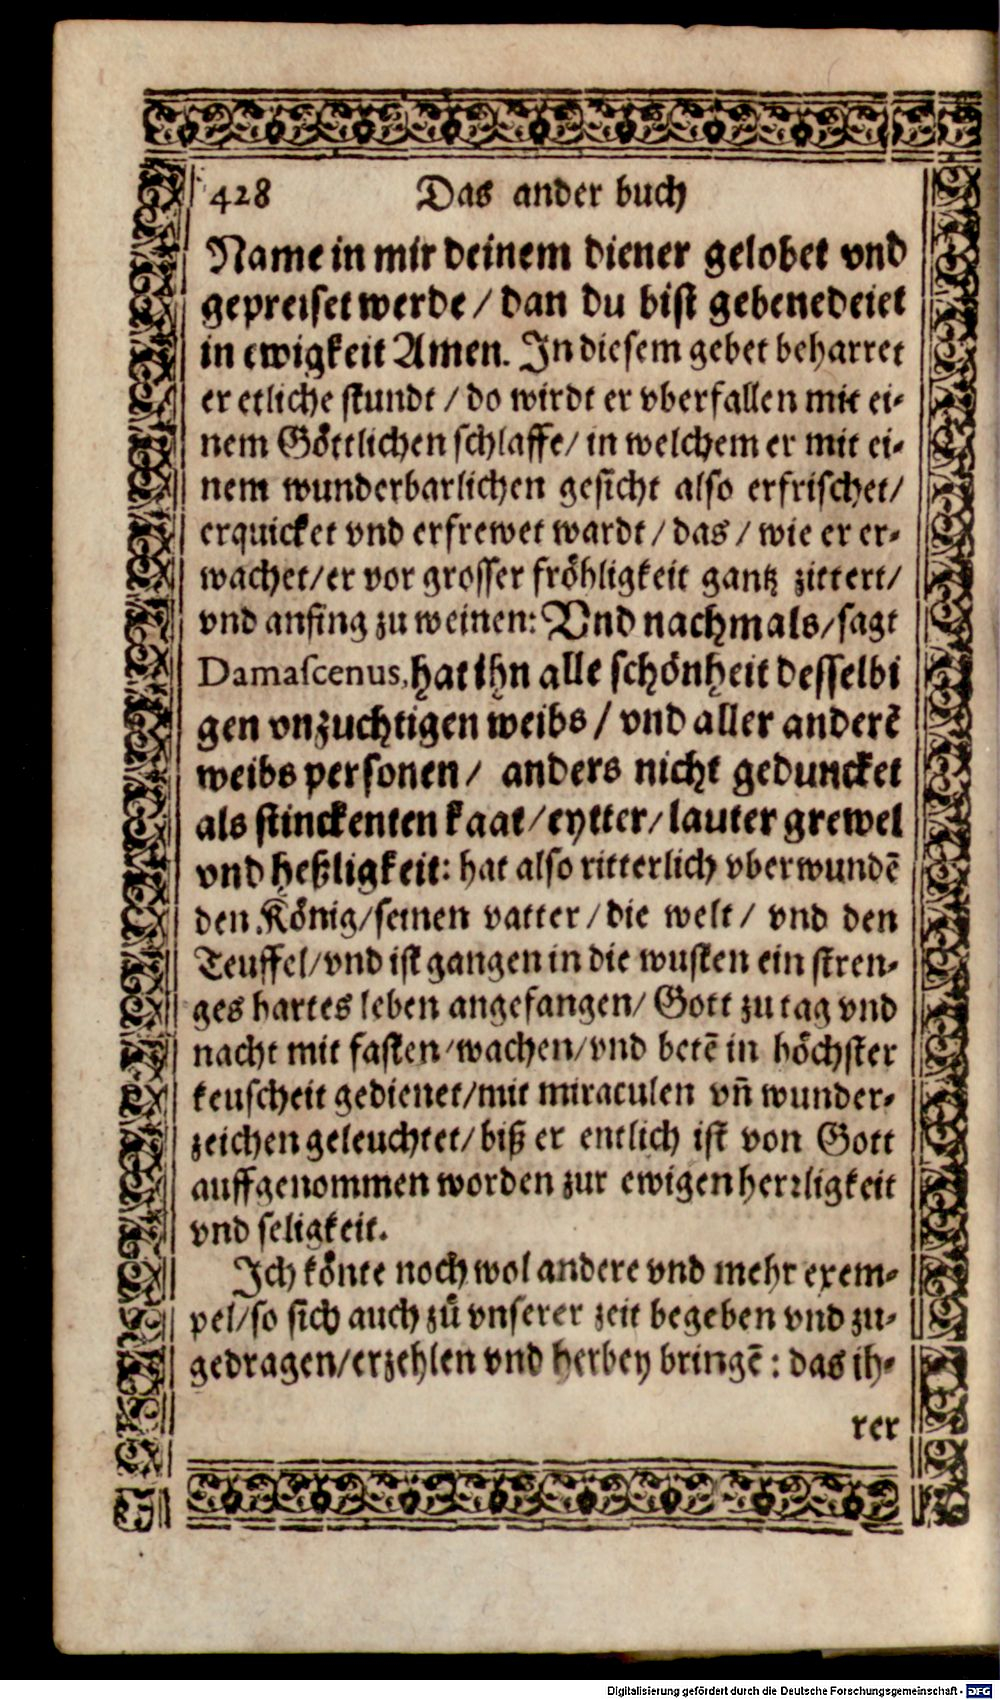 428 Das ander buch
Name in mir deinem diener gelobet vnd
gepreiset werde / dan du bist gebenedeiet
in ewigkeit Amen. In diesem gebet beharret
er etliche stundt / do wirdt er vberfallen mit ei-
nem Göttlichen schlaffe / in welchem er mit ei-
nem wunderbarlichen gesicht also erfrischet /
erquicket vnd erfrewet wardt / das / wie er er-
wachet / er vor grosser fröhligkeit gantz zittert /
vnd anfing zu weinen: Vnd nachmals / sagt
Damascenus, hat ihn alle schönheit desselbi
gen vnzuchtigen weibs / vnd aller anderē
weibs personen / anders nicht geduncket
als stinckenten kaat / eytter / lauter grewel
vnd heßligkeit: hat also ritterlich vberwundē
den König / seinen vatter / die welt / vnd den
Teuffel / vnd ist gangen in die wusten ein stren-
ges hartes leben angefangen / Gott zu tag vnd
nacht mit fasten / wachen / vnd betē in höchster
keuscheit gedienet / mit miraculen vn̄ wunder-
zeichen geleuchtet / biß er entlich ist von Gott
auffgenommen worden zur ewigen herꝛligkeit
vnd seligkeit.
Ich könte noch wol andere vnd mehr exem-
pel / so sich auch zů vnserer zeit begeben vnd zu-
gedragen / erzehlen vnd herbey bringē : das ih-
rer
Digitalisierung gefördert durch die Deutsche Forschungsgemeinschaft - DFG